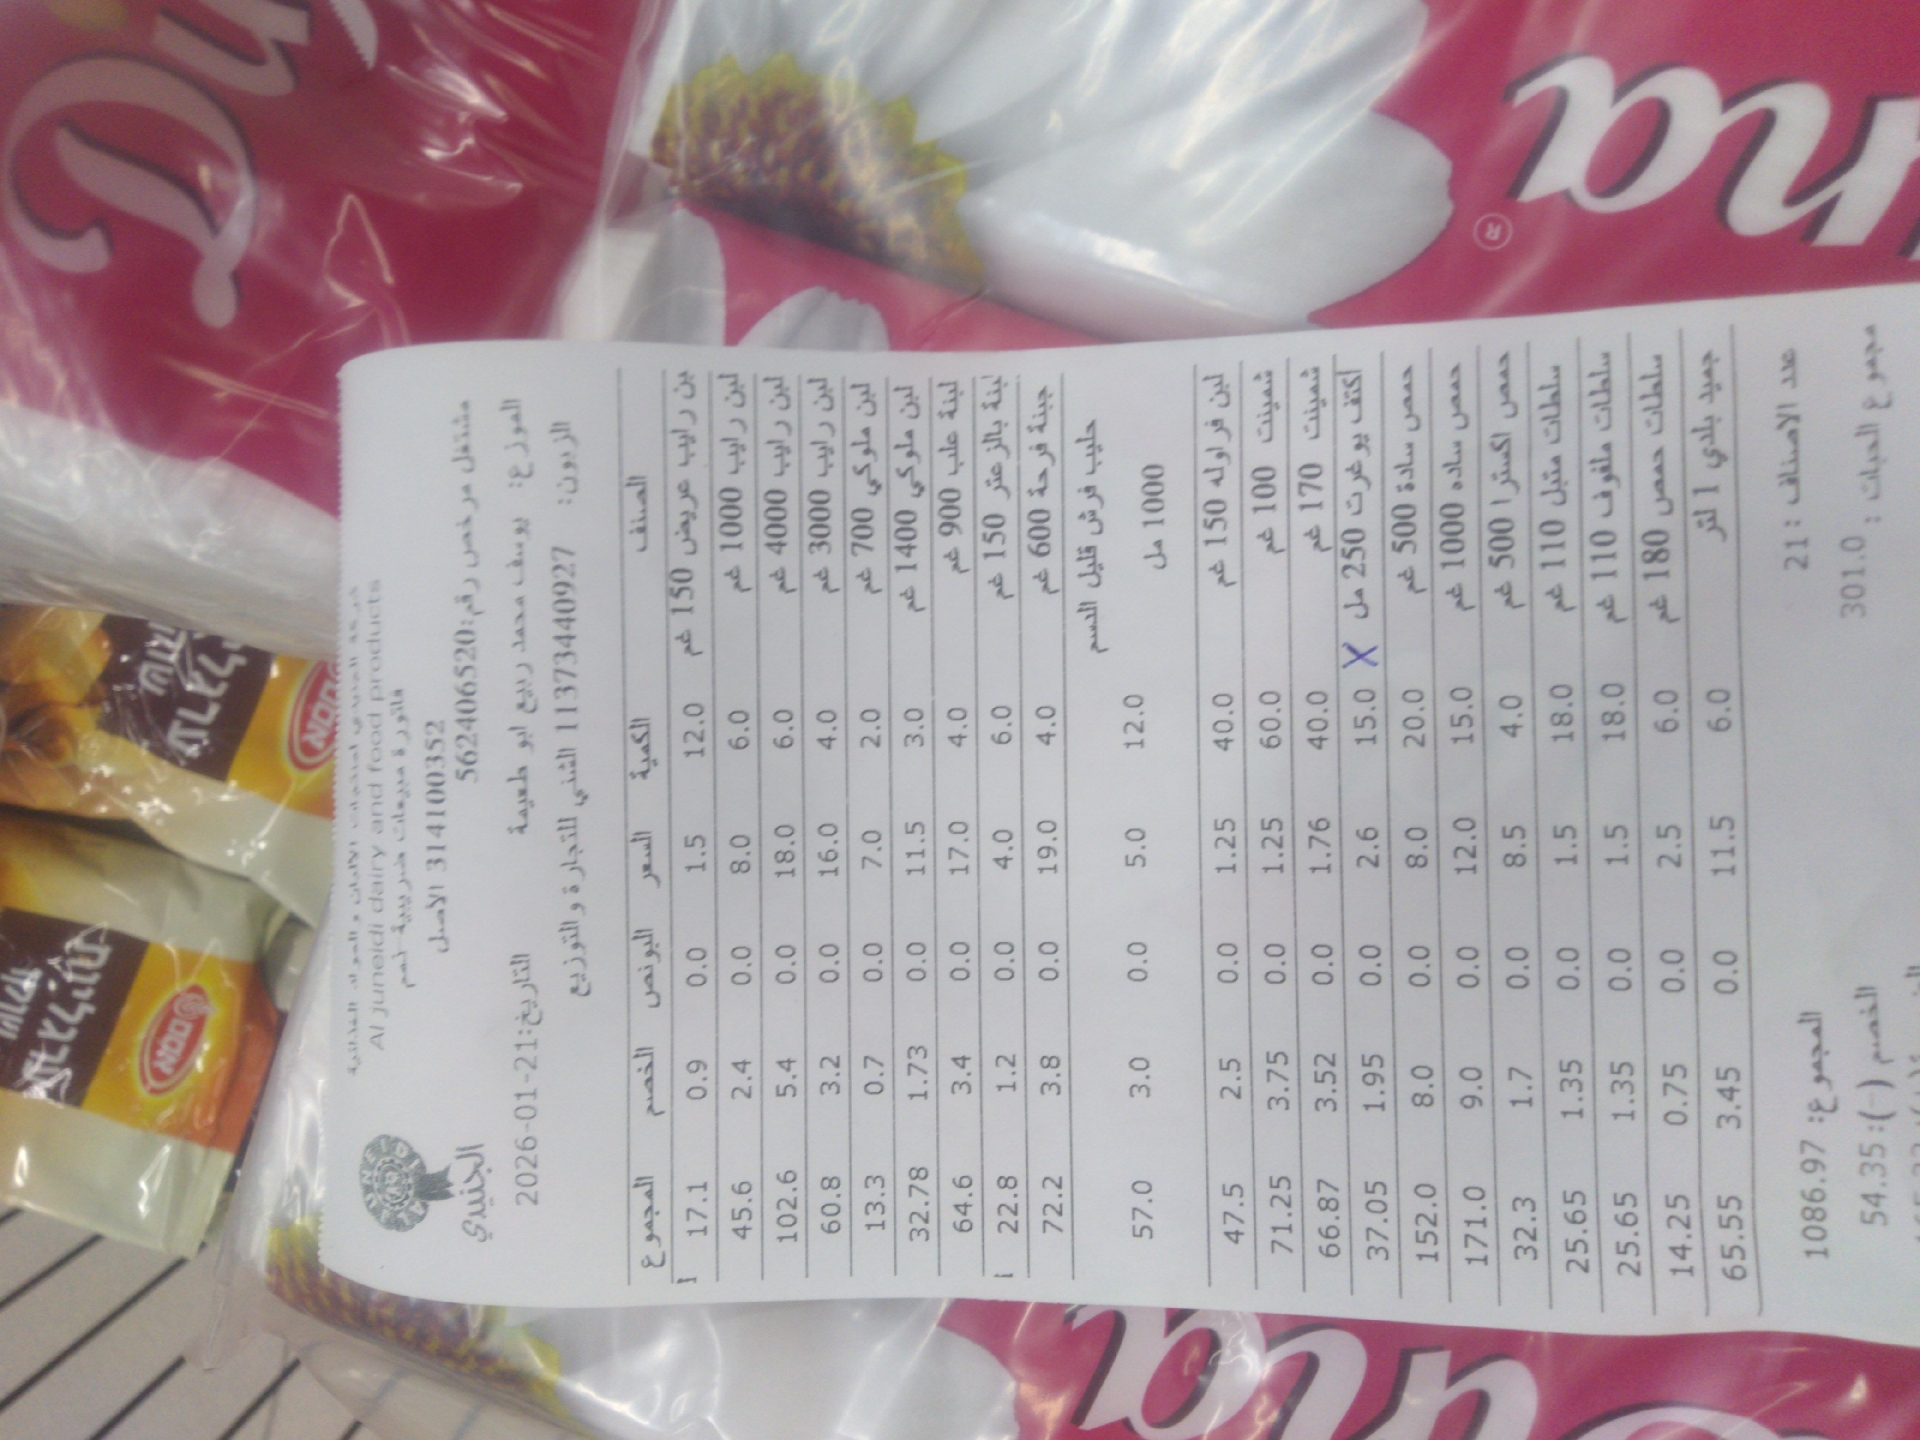 شركة الجنيدي لمنتجات الالبان والمواد الغذائية
Al juneidi dairy and food products
فاتورة مبيعات ضريبية
314100352 الاصل
مشتغل مرخص رقم:562406520
الجنيدي
الموزع: يوسف محمد ربيع ابو طعيمة
التاريخ:2026-01-21
الزبون: 1137344092​7 الشني للتجارة والتوزيع
الصنف الكمية السعر البونص الخصم المجموع
بن رايب عريض 150 غم 12.0 1.5 0.0 0.9 17.1
لبن رايب 1000 غم 6.0 8.0 0.0 2.4 45.6
لبن رايب 4000 غم 6.0 18.0 0.0 5.4 102.6
لبن رايب 3000 غم 4.0 16.0 0.0 3.2 60.8
لبن ملوكي 700 غم 2.0 7.0 0.0 0.7 13.3
لبن ملوكي 1400 غم 3.0 11.5 0.0 1.73 32.78
لبنة علب 900 غم 4.0 17.0 0.0 3.4 64.6
لبنة بالزعتر 150 غم 6.0 4.0 0.0 1.2 22.8
جبنة فرحة 600 غم 4.0 19.0 0.0 3.8 72.2
حليب فرش قليل الدسم
1000 مل 12.0 5.0 0.0 3.0 57.0
لبن فراوله 150 غم 40.0 1.25 0.0 2.5 47.5
شمينت 100 غم 60.0 1.25 0.0 3.75 71.25
شمينت 170 غم 40.0 1.76 0.0 3.52 66.87
اكتف يوغرت 250 مل X 15.0 2.6 0.0 1.95 37.05
حمص سادة 500 غم 20.0 8.0 0.0 8.0 152.0
حمص ساده 1000 غم 15.0 12.0 0.0 9.0 171.0
حمص اكسترا 500 غم 4.0 8.5 0.0 1.7 32.3
سلطات متبل 110 غم 18.0 1.5 0.0 1.35 25.65
سلطات ملفوف 110 غم 18.0 1.5 0.0 1.35 25.65
سلطات حمص 180 غم 6.0 2.5 0.0 0.75 14.25
جميد بلدي 1 لتر 6.0 11.5 0.0 3.45 65.55
عدد الاصناف : 21 المجموع: 1086.97
مجموع الحبات : 301.0 الخصم (-): 54.35
DOK
DOK
®